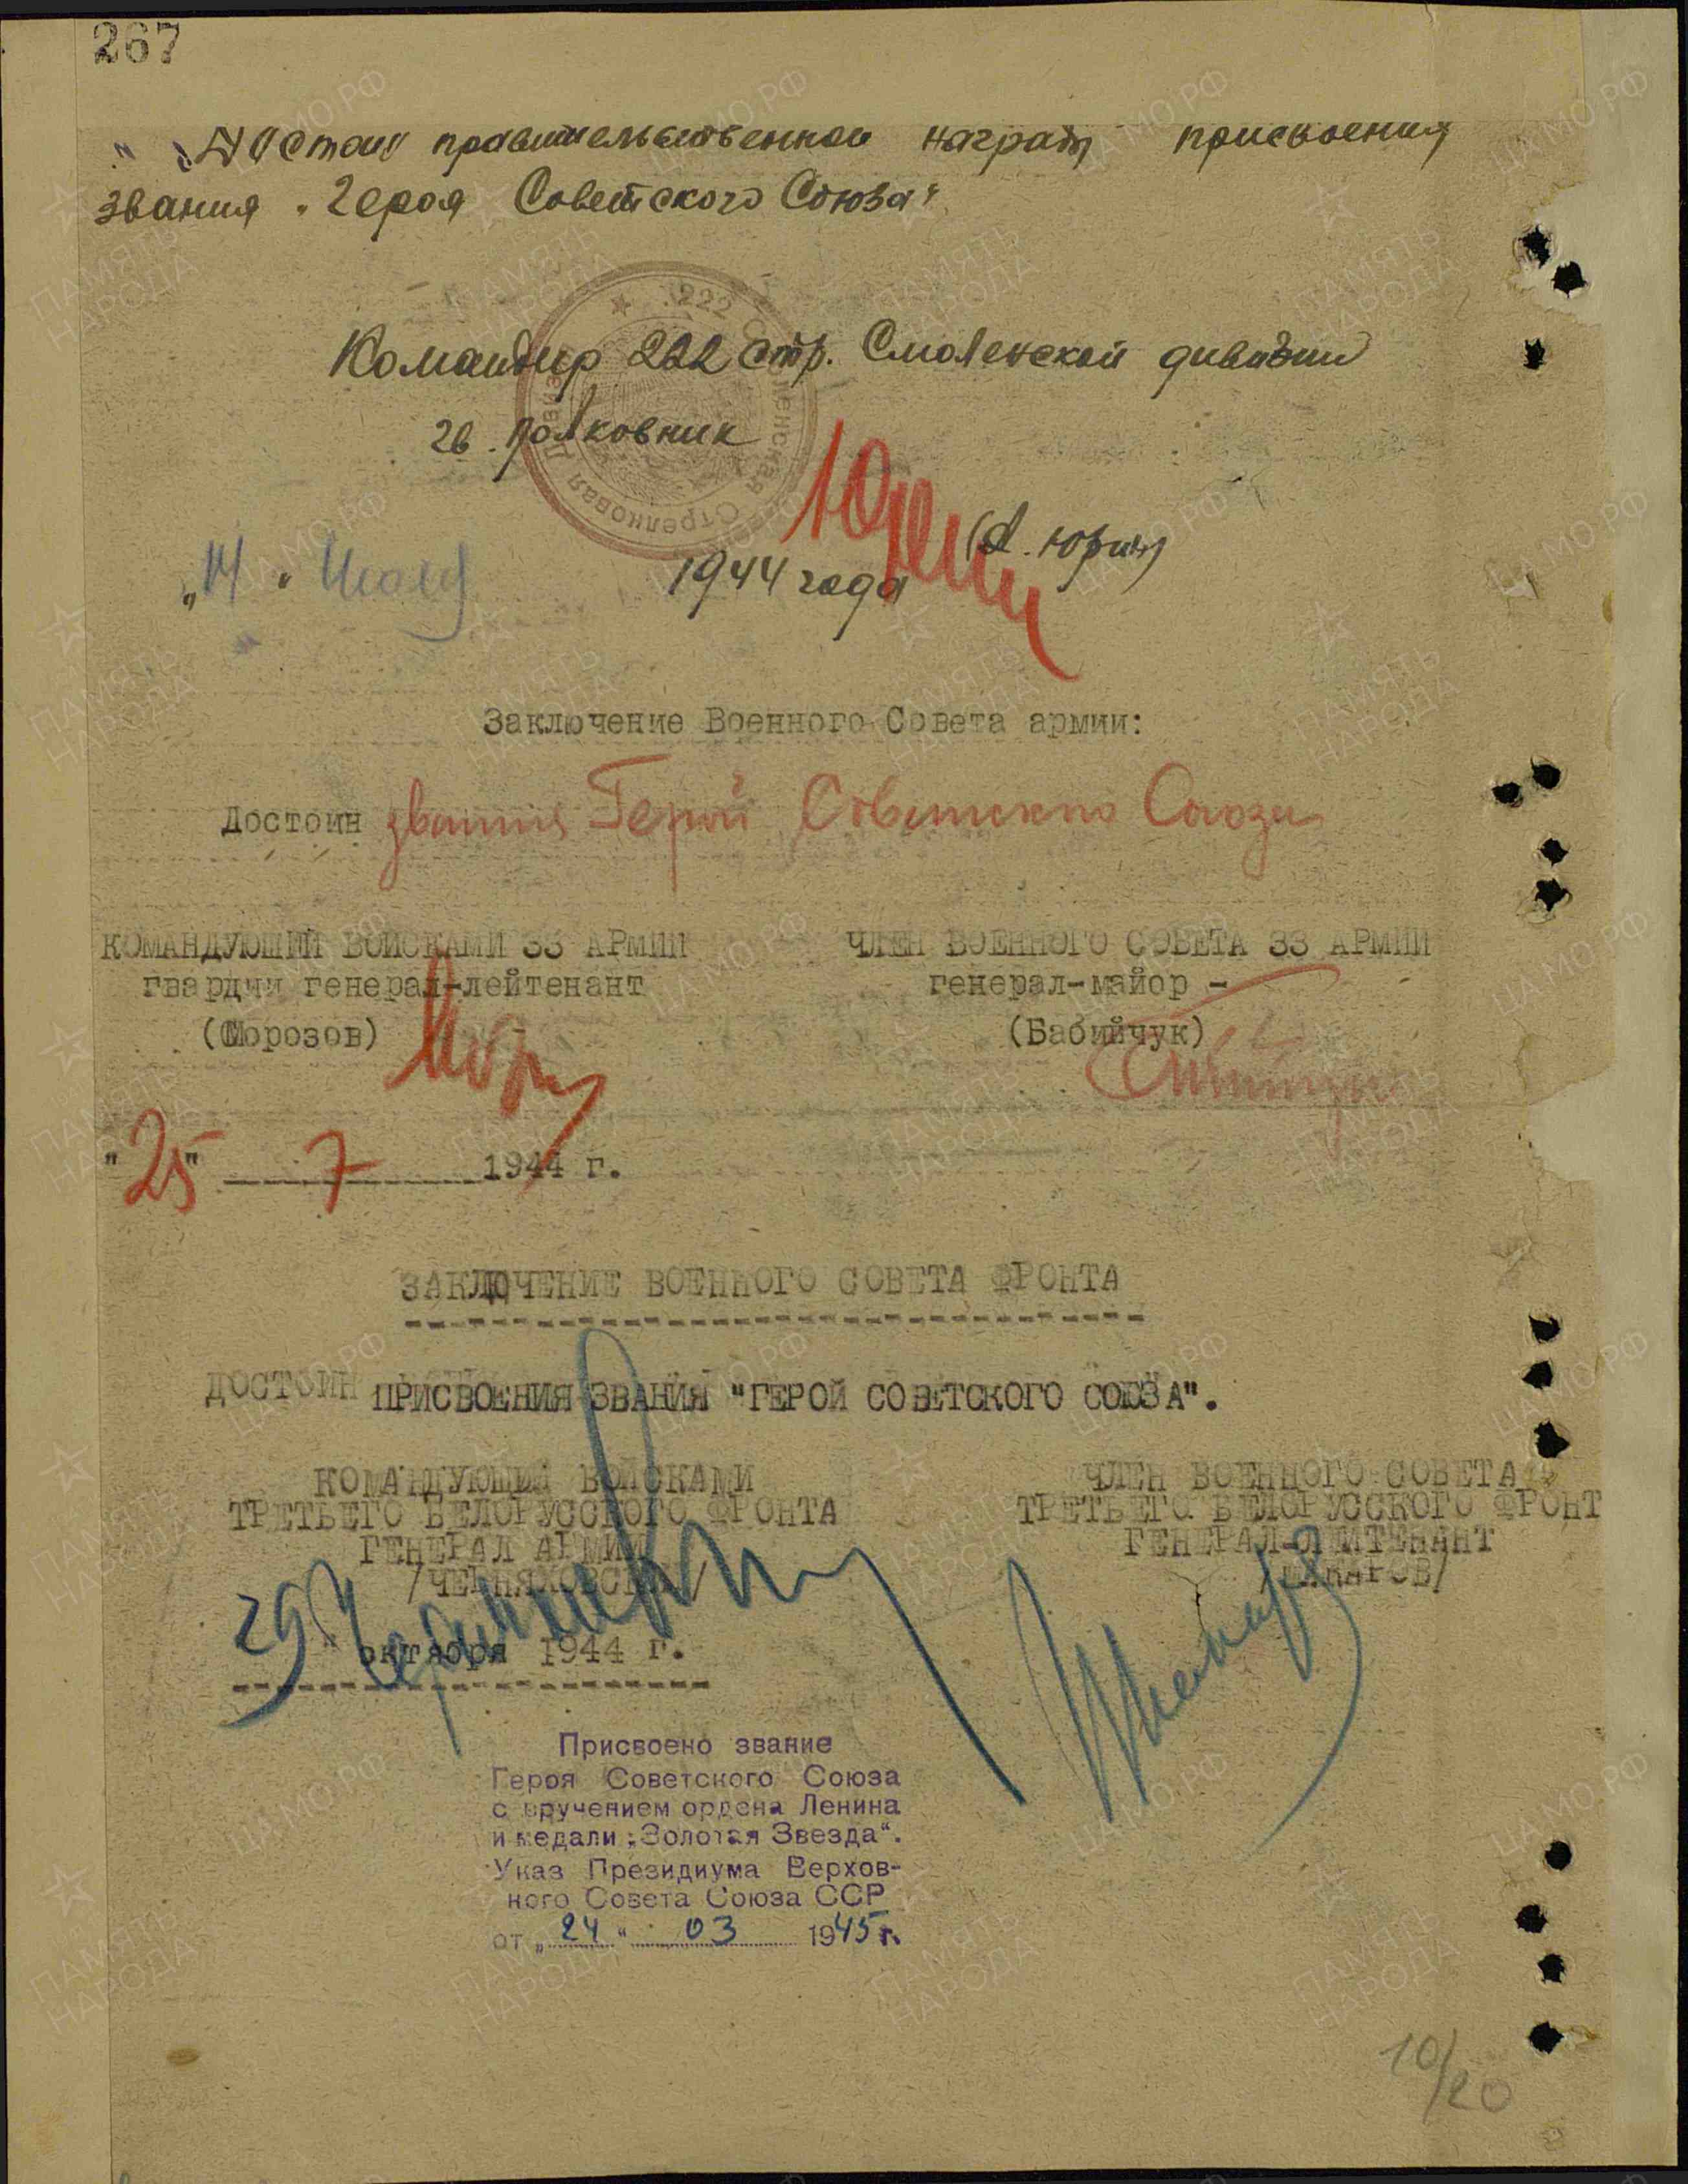 267
" Достоин правительственной награды присвоения
звания "Героя Советского Союза"
222 Стрелковая Смоленская
Командир 222 стр. Смоленской дивизии
гв. полковник
Юрин (Юрин)
"14" Июля 1944 года
Заключение Военного Совета армии:
Достоин звания Герой Советского Союза
КОМАНДУЮЩИЙ ВОЙСКАМИ 33 АРМИИ
гвардии генерал-лейтенант
(Морозов)
ЧЛЕН ВОЕННОГО СОВЕТА 33 АРМИИ
генерал-майор -
(Бабийчук)
"25" 7 1944 г.
ЗАКЛЮЧЕНИЕ ВОЕННОГО СОВЕТА ФРОНТА
ДОСТОИН ПРИСВОЕНИЯ ЗВАНИЯ "ГЕРОЙ СОВЕТСКОГО СОЮЗА".
КОМАНДУЮЩИЙ ВОЙСКАМИ
ТРЕТЬЕГО БЕЛОРУССКОГО ФРОНТА
ГЕНЕРАЛ АРМИИ
/ЧЕРНЯХОВСКИЙ/
ЧЛЕН ВОЕННОГО СОВЕТА
ТРЕТЬЕГО БЕЛОРУССКОГО ФРОНТ
ГЕНЕРАЛ-ЛЕЙТЕНАНТ
/МАКАРОВ/
29" октября 1944 г.
Присвоено звание
Героя Советского Союза
с вручением ордена Ленина
и медали „Золотая Звезда“.
Указ Президиума Верхов-
ного Совета Союза ССР
от „24“ 03 1945 г.
10/20
ПАМЯТЬ НАРОДА
ЦАМО.РФ